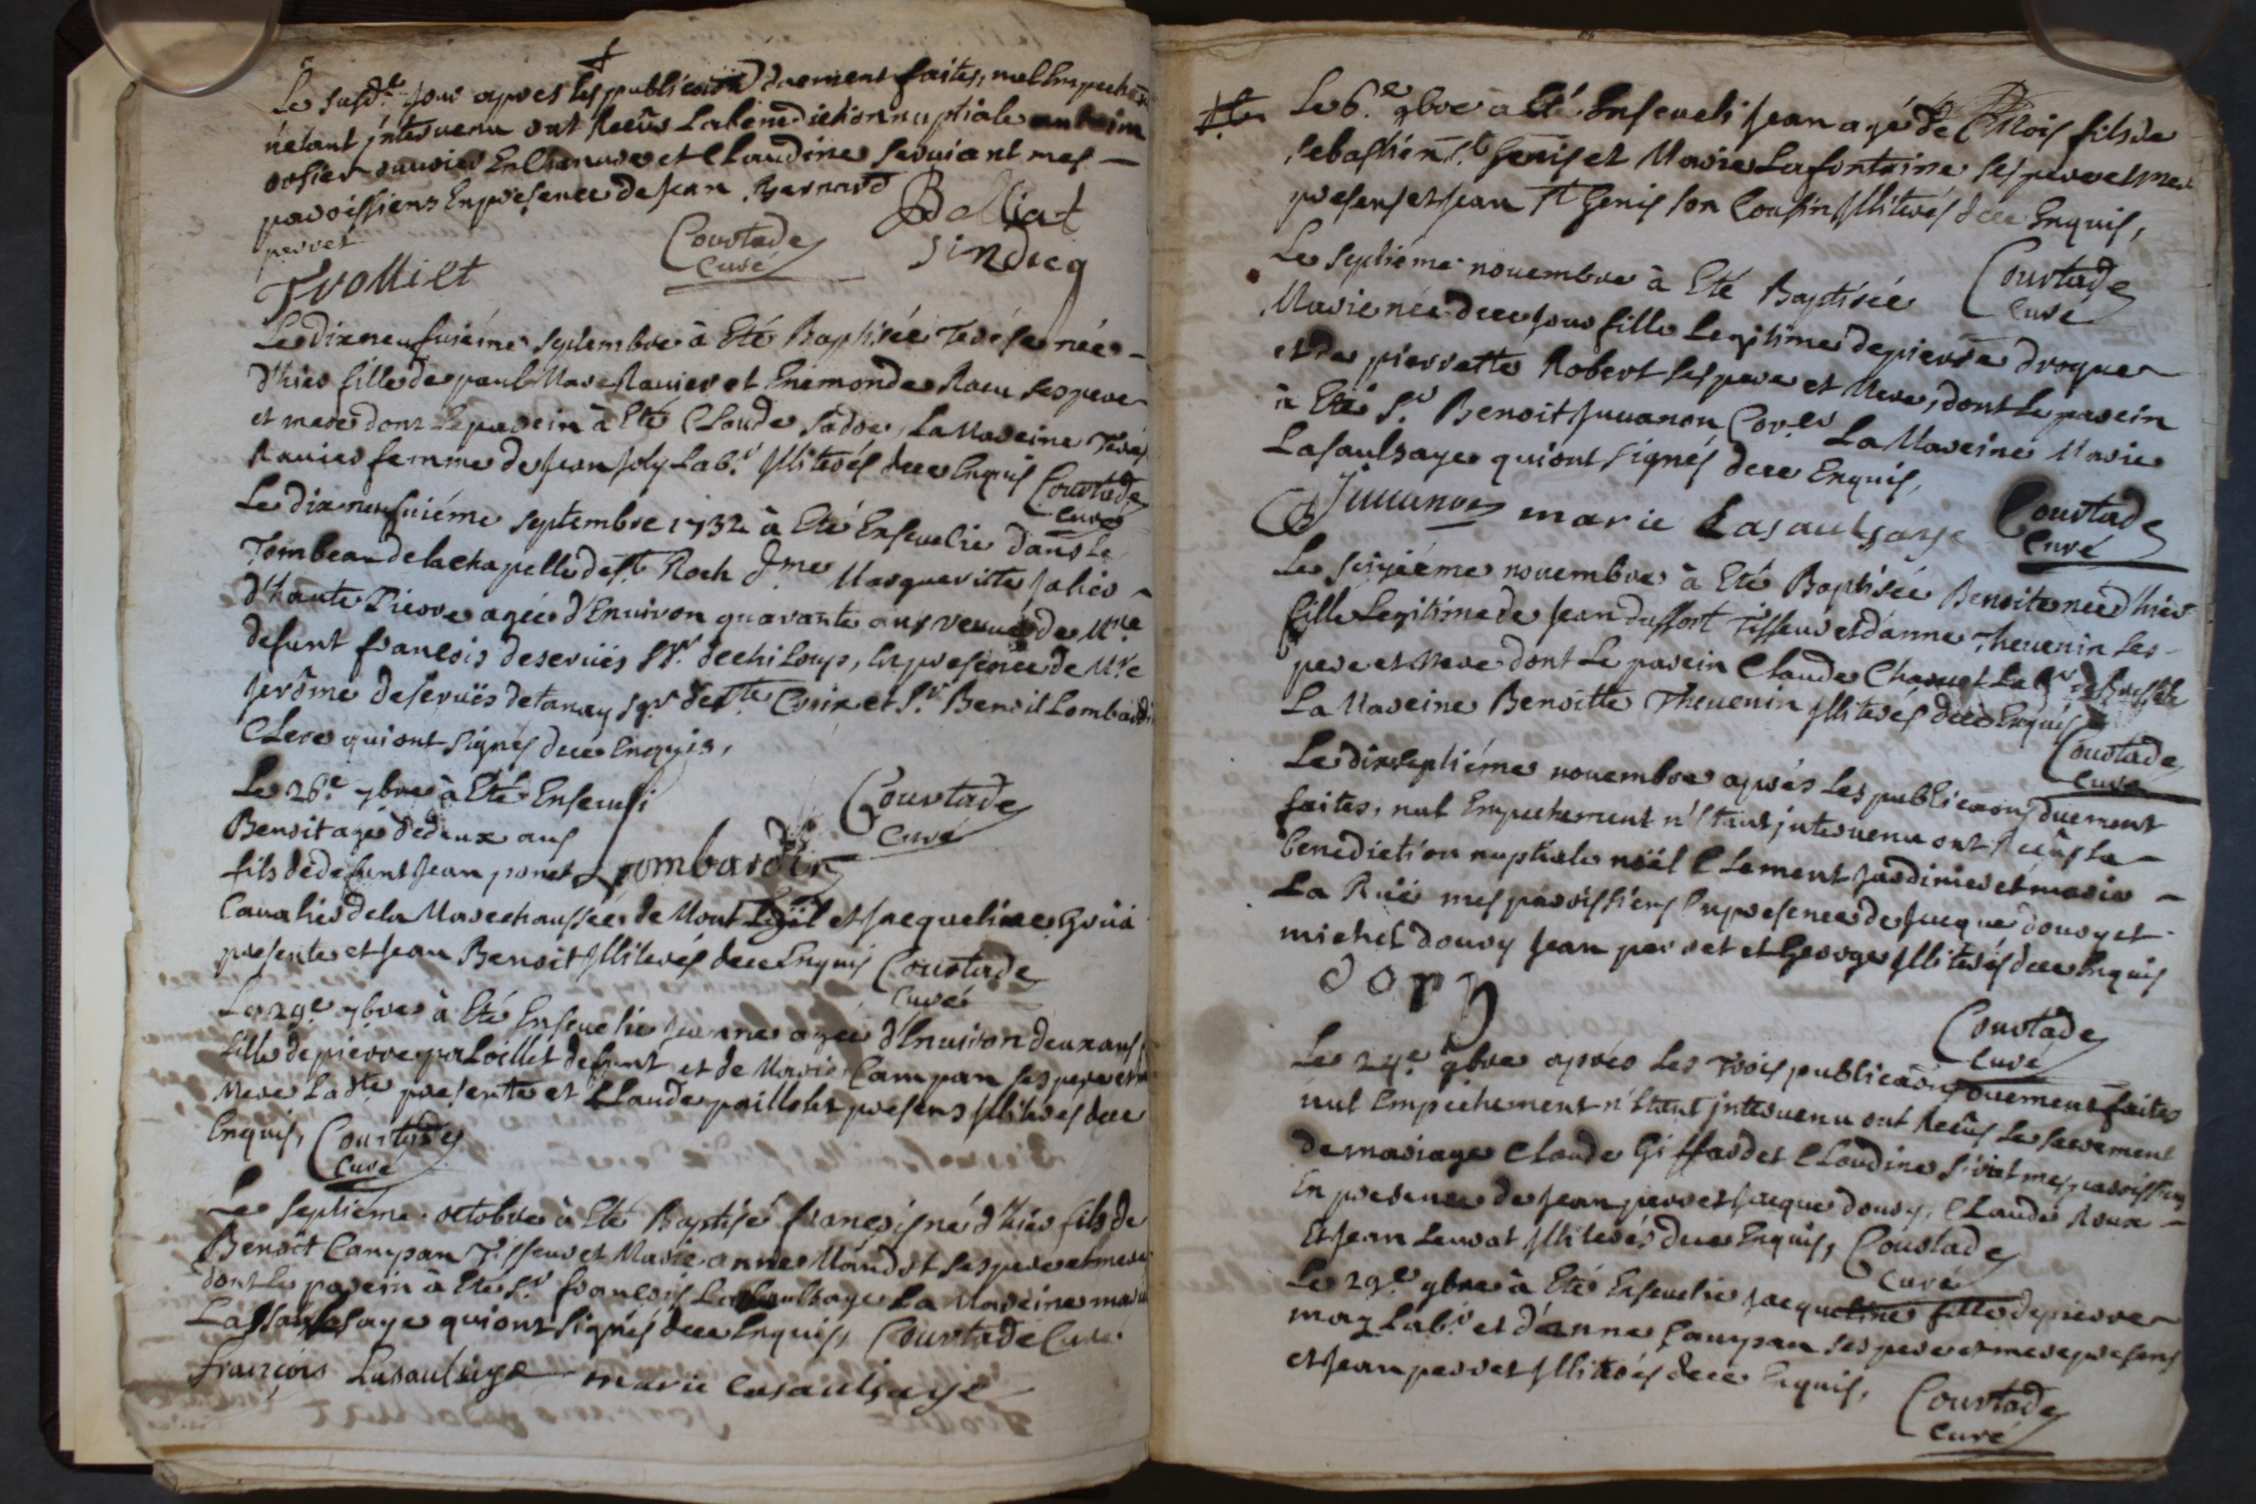 Le susd.t jour apres les publicaons duement faites, nul Empechem
nétant jntervenu ont Recûs La benediction nuptiale
ouvrier En et Claudine mes
paroissiens En présence de Jean Bernard
perret
Courtade
curé
Belliat
sindicq
Trolliet
Le dixneufuiéme septembre à Eté Baptisée Terése née
d'hier fille de paul Marc Ravier et Enemonde Roeu ses pere
et mere dont Le parein à Eté Claude Sadoe, La Mareine Terése
Ravier femme de Jean Joly Lab.r Jllitérés dece Enquis Courtade
curé
Le dixneufuiéme septembre 1732 à Eté Ensevelie dans Le
Tombeau de la chapelle de S.t Roch D.me Margueritte
d'haute Pierre agée d'Environ quarante ans veuve de M.re
defunt françois deservies S.gr dechiloup, En presence de M.re
Jerôme deservies de tanay sgr de S.te Croix et S.r Benoit Lombardin
Clerc qui ont signés dece Enquis,
Le 26.e 7bre à Eté Enseveli
Benoit agé de deux ans
fils de defunt Jean ponet
Lombardin
Courtade
Curé
Cavalier de la Marechaussée de Mont Luel et Jacqueline Goüa
presente et Jean Benoit Jllitérés dece Enquis Courtade
curé
Le 29.e 7bre à Eté Ensevelie Jeanne agée d'Environ deux ans
fille de pierre paillet defunt et de Marie Campan ses pere et
Mere La d.te presente et Claude paillet presens Jllitérés dece
Enquis, Courtade
Curé
Le septiéme octobre à Eté Baptisé françois né d'hier fils de
Benoit Campan Tisseur et Marie anne Mandot ses pere et mere
dont Le parein à Eté S.r françois Lasaulsaye La Mareine marie
Lassaulsaye qui ont signés dece Enquis, Courtade Curé
françois Lasaulsaye marie Lasaulsaye
Le 6.e 9bre à Eté Enseveli Jean agé de Mois fils de
sebastien S.t Genis et Marie Lafontaine ses pere et mere
presens et Jean S.t Genis son Cousin Jllitérés dece Enquis,
Courtade
curé
Le septiéme novembre à Eté Baptisée
Marie née dece jour fille Legitime de pierre droque
et de pierrette Robert ses pere et Mere, dont Le parein
à Eté S.r Benoit Juvanon La Mareine Marie
Lasaulsaye qui ont signés dece Enquis,
B Juvanon marie Lasaulsaye Courtade
Curé
Le seiziéme novembre à Eté Baptisée Benoite née d'hier
fille Legitime de Jean duffort Tisseur et d'anne Thevenin ses
pere et Mere dont Le parein Claude Lab.r
La Mareine Benoitte Thevenin Jllitérés dece Enquis
Courtade
Curé
Le dixseptiéme novembre aprés Les publicaons duement
faites, nul Empechement n'Etant jntervenu ont Recûs La
benediction nuptiale noël Clement Jardinier et marie
La Rüe mes paroissiens En presence de Jacque douvy et
michel douvy Jean perret et George Jllitérés dece Enquis
dory
Courtade
Curé
Le 24.e 9bre aprés Les Trois publicaons duement faites
nul Empechement n'Etant jntervenu ont Recûs Le sacrement
de mariage Claude Giffard et Claudine Siviat mes paroissiens
En presence de Jean perret Jacque douvy, Claude Roux
Et Jean Leurat Jllitérés dece Enquis, Courtade
Curé
Le 29.e 9bre à Eté Ensevelie Jacqueline fille de pierre
maz Lab.r et d'anne Campan ses pere et mere presens
et Jean perret Jllitérés dece Enquis,
Courtade
Curé